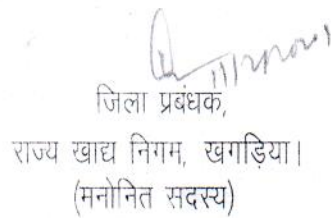 जिला प्रबंधक,
राज्य खाद्य निगम, खगड़िया।
(मनोनित सदस्य)